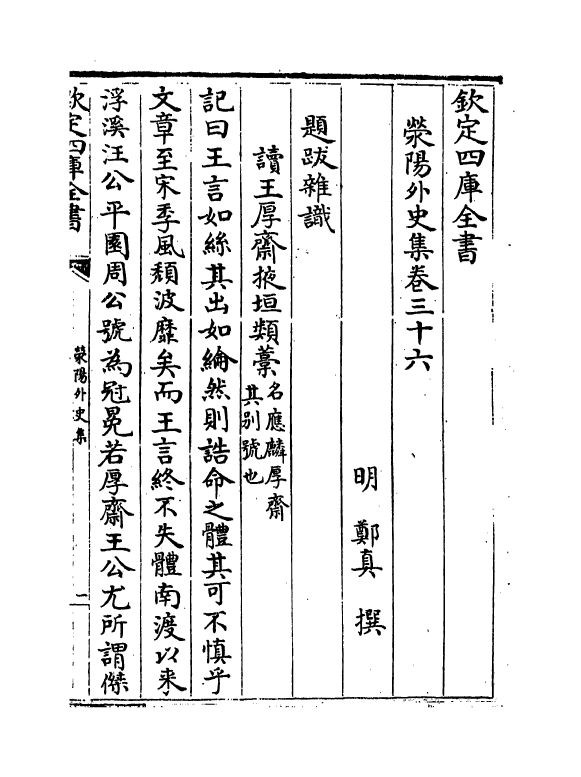 欽定四庫全書
滎陽外史集卷三十六
明　鄭真　撰
題跋雜識
讀王厚齋掖垣類藁名應麟厚齋其别號也
記曰王言如絲其出如綸然則誥命之體其可不慎乎
文章至宋季風頽波靡矣而王言終不失體南渡以来
浮溪汪公平園周公號為冠冕若厚齋王公尤所謂傑
欽定四庫全書
滎陽外史集